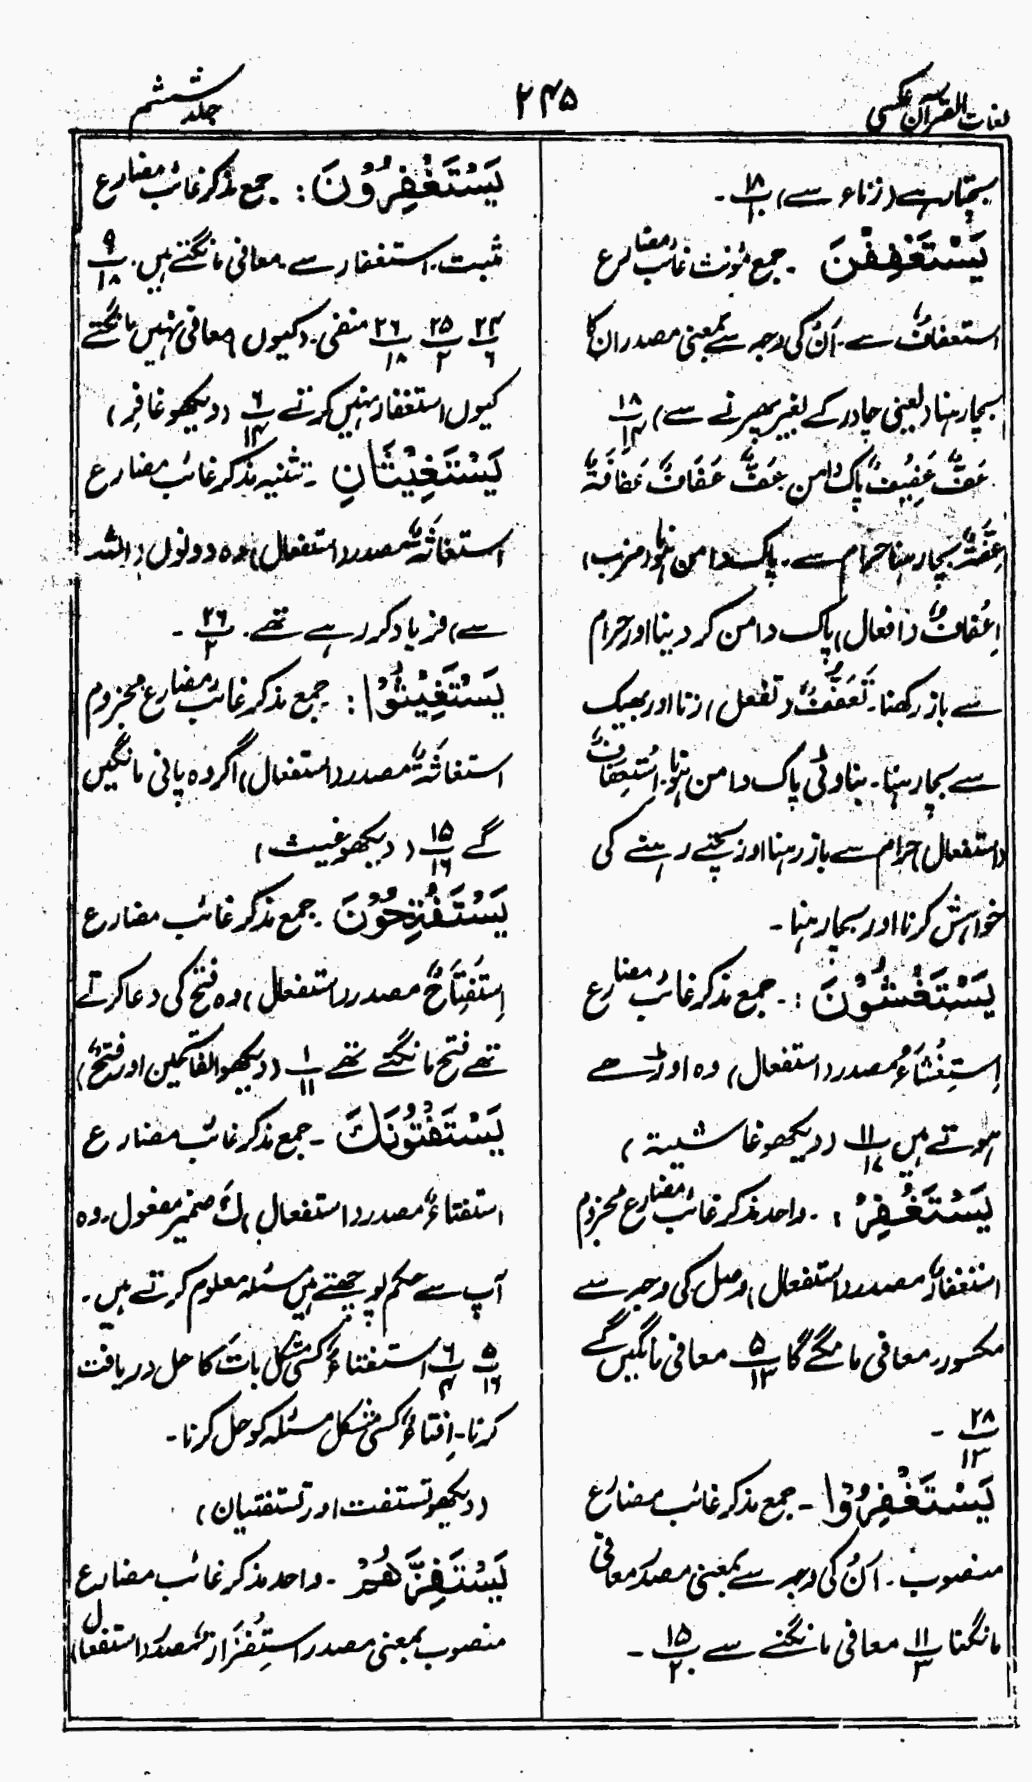 لغات القرآن عکسی
۲۴۵
جلد ششم
بچتا رہے (زناء سے) ۱۸/۱۰ ۔
یَسْتَعْفِفْنَ ۔ جمع مؤنث غائب مضارع
استعفافٌ سے ۔ اَنْ کی وجہ سے بمعنی مصدر ان کا
بچا رہنا (یعنی چادر کے بغیر پھرنے سے) ۱۸/۱۴
عَفٌّ عَفِیْفٌ پاک دامن عَفٌّ عَفَافٌ عَفَافَۃٌ
عِفَّۃٌ بچا رہنا حرام سے ۔ پاک دامن ہونا (ضرب)
اِعْفَافٌ (افعال) پاک دامن کر دینا اور حرام
سے باز رکھنا ۔ تَعَفُّفٌ (تفعل) زنا اور بھیک
سے بچا رہنا ۔ بناوٹی پاک دامن ہونا ۔ اِسْتِعْفَافٌ
(استفعال) حرام سے باز رہنا اور بچتے رہنے کی
خواہش کرنا اور بچا رہنا ۔
یَسْتَغْشُوْنَ : ۔ جمع مذکر غائب مضارع
اِسْتِغْشَاءٌ مصدر (استفعال) وہ اوڑھے
ہوتے ہیں ۱۱/۱۷ (دیکھو غاشیۃ)
یَسْتَغْفِرْ : ۔ واحد مذکر غائب مضارع مجزوم
استغفارٌ مصدر (استفعال) وصل کی وجہ سے
مکسور ۔ معافی مانگے گا ۵/۱۳ معافی مانگیں گے
۲۸/۱۳ ۔
یَسْتَغْفِرُوْا ۔ جمع مذکر غائب مضارع
منصوب ۔ اَنْ کی وجہ سے بمعنی مصدر معافی
مانگنا ۱۱/۳ معافی مانگنے سے ۱۵/۲۰ ۔
یَسْتَغْفِرُوْنَ : جمع مذکر غائب مضارع
مثبت ۔ استغفار سے ۔ معافی مانگتے ہیں ۔ ۹/۱۸
۲۴/۶ ۲۵/۲ ۲۶/۱۸ منفی ۔ (کیوں) معافی نہیں مانگتے
کیوں استغفار نہیں کرتے ۶/۱۴ (دیکھو غافِر)
یَسْتَغِیْثَانِ ۔ تثنیہ مذکر غائب مضارع
استغاثۃٌ مصدر (استفعال) وہ دونوں (اللہ
سے) فریاد کر رہے تھے ۔ ۲۶/۲ ۔
یَسْتَغِیْثُوْا : جمع مذکر غائب مضارع مجزوم
استغاثۃٌ مصدر (استفعال) اگر وہ پانی مانگیں
گے ۱۵/۱۶ (دیکھو غیث)
یَسْتَفْتِحُوْنَ ۔ جمع مذکر غائب مضارع
اِسْتِفْتَاحٌ مصدر (استفعال) وہ فتح کی دعا کرتے
تھے فتح مانگتے تھے ۱/۱۱ (دیکھو الفاتحین اور فتحٌ)
یَسْتَفْتُوْنَکَ ۔ جمع مذکر غائب مضارع
استفتاءٌ مصدر (استفعال) کَ ضمیر مفعول ۔ وہ
آپ سے حکم پوچھتے ہیں مسئلہ معلوم کرتے ہیں ۔
۵/۱۶ ۶/۴ استفتاءٌ کسی مشکل بات کا حل دریافت
کرنا ۔ اِفتاءٌ کسی مشکل مسئلہ کو حل کرنا ۔
(دیکھو تستفت اور تستفتیان)
یَسْتَفِزَّھُمْ ۔ واحد مذکر غائب مضارع
منصوب بمعنی مصدر اِسْتِفْزَازٌ مصدر (استفعال)